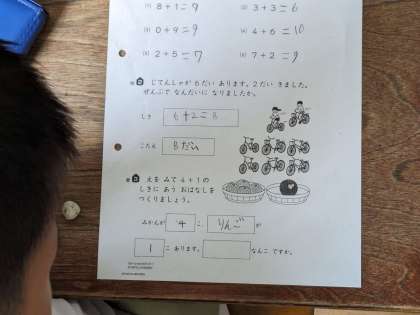 8+1=9
3+3=6
(3) 0+9=9
(4) 4+6=10
(5) 2+5=7
(6) 7+2=9
じてんしゃが 6だい あります。2だい きました。
ぜんぶで なんだいに なりましたか。
しき 6+2=8
こたえ 8だい
えを みて 4+1の
しきに あう おはなしを
つくりましょう。
みかんが 4 こ、りんご が
1 こ あります。 なんこ ですか。